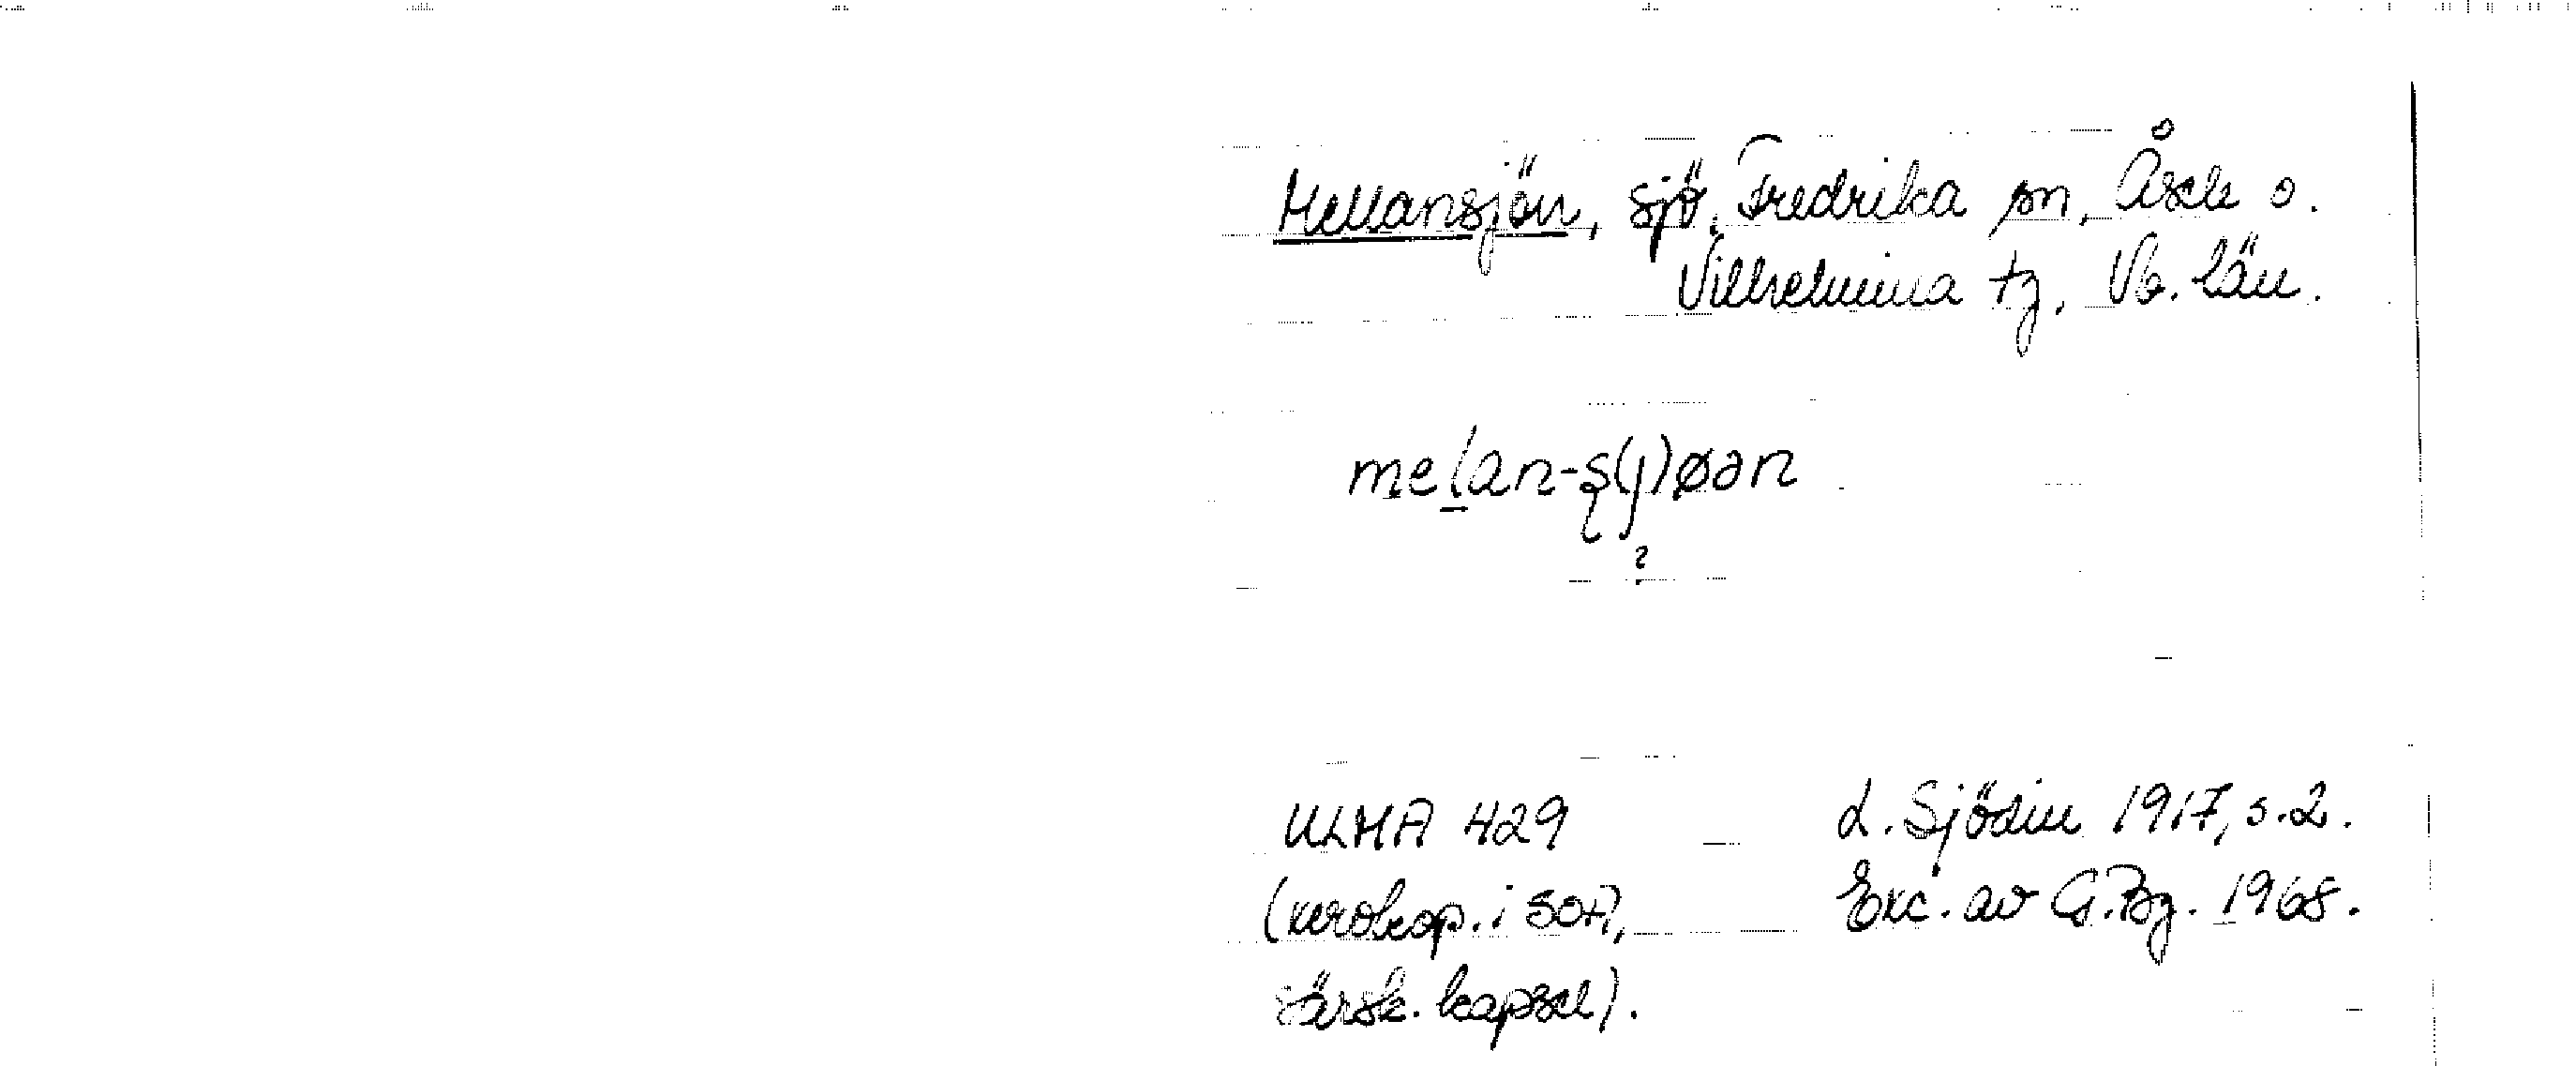 Mellansjön, sjö, Fredrika sn, Åsele o.
Vilhelmina tg, Vb. län.
melan-s(j)øən
?
ULMA 429
L. Sjödin 1917, s.2.
(xerokop. i SOA,
Exc. av G.Bg. 1968.
särsk. kapsel).